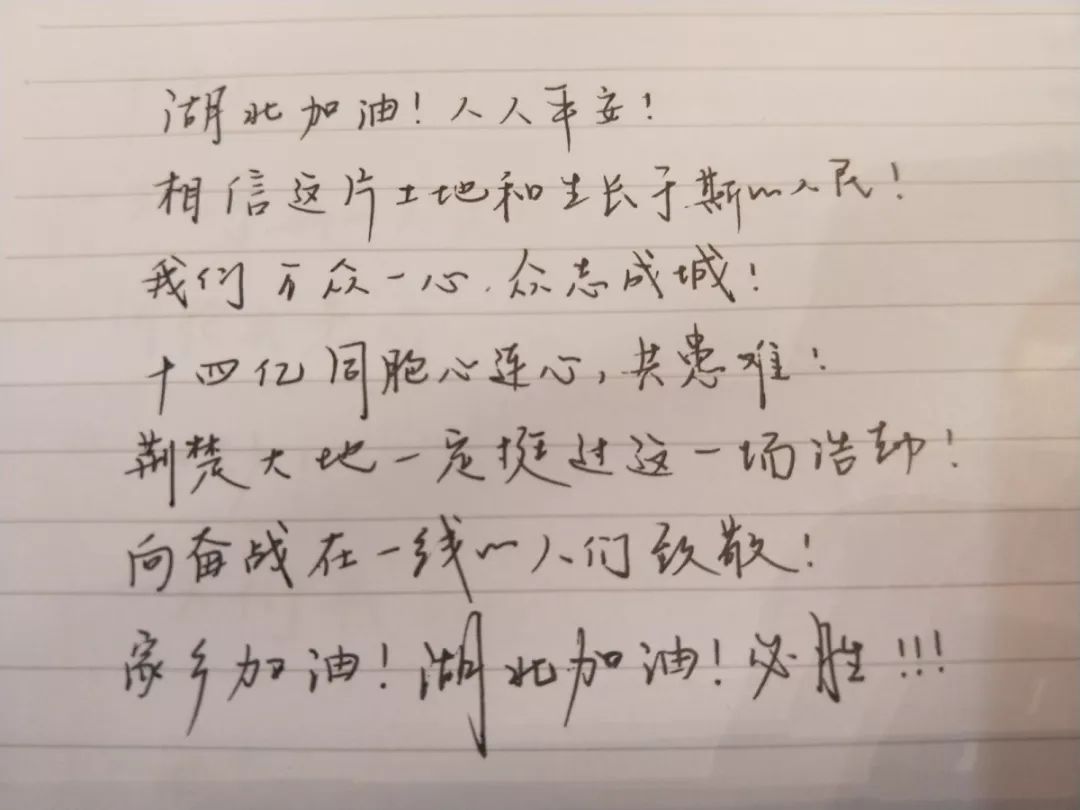 湖北加油！人人平安！
相信这片土地和生长于斯的人民！
我们万众一心，众志成城！
十四亿同胞心连心，共患难！
荆楚大地一定挺过这一场浩劫！
向奋战在一线的人们致敬！
家乡加油！湖北加油！必胜！！！